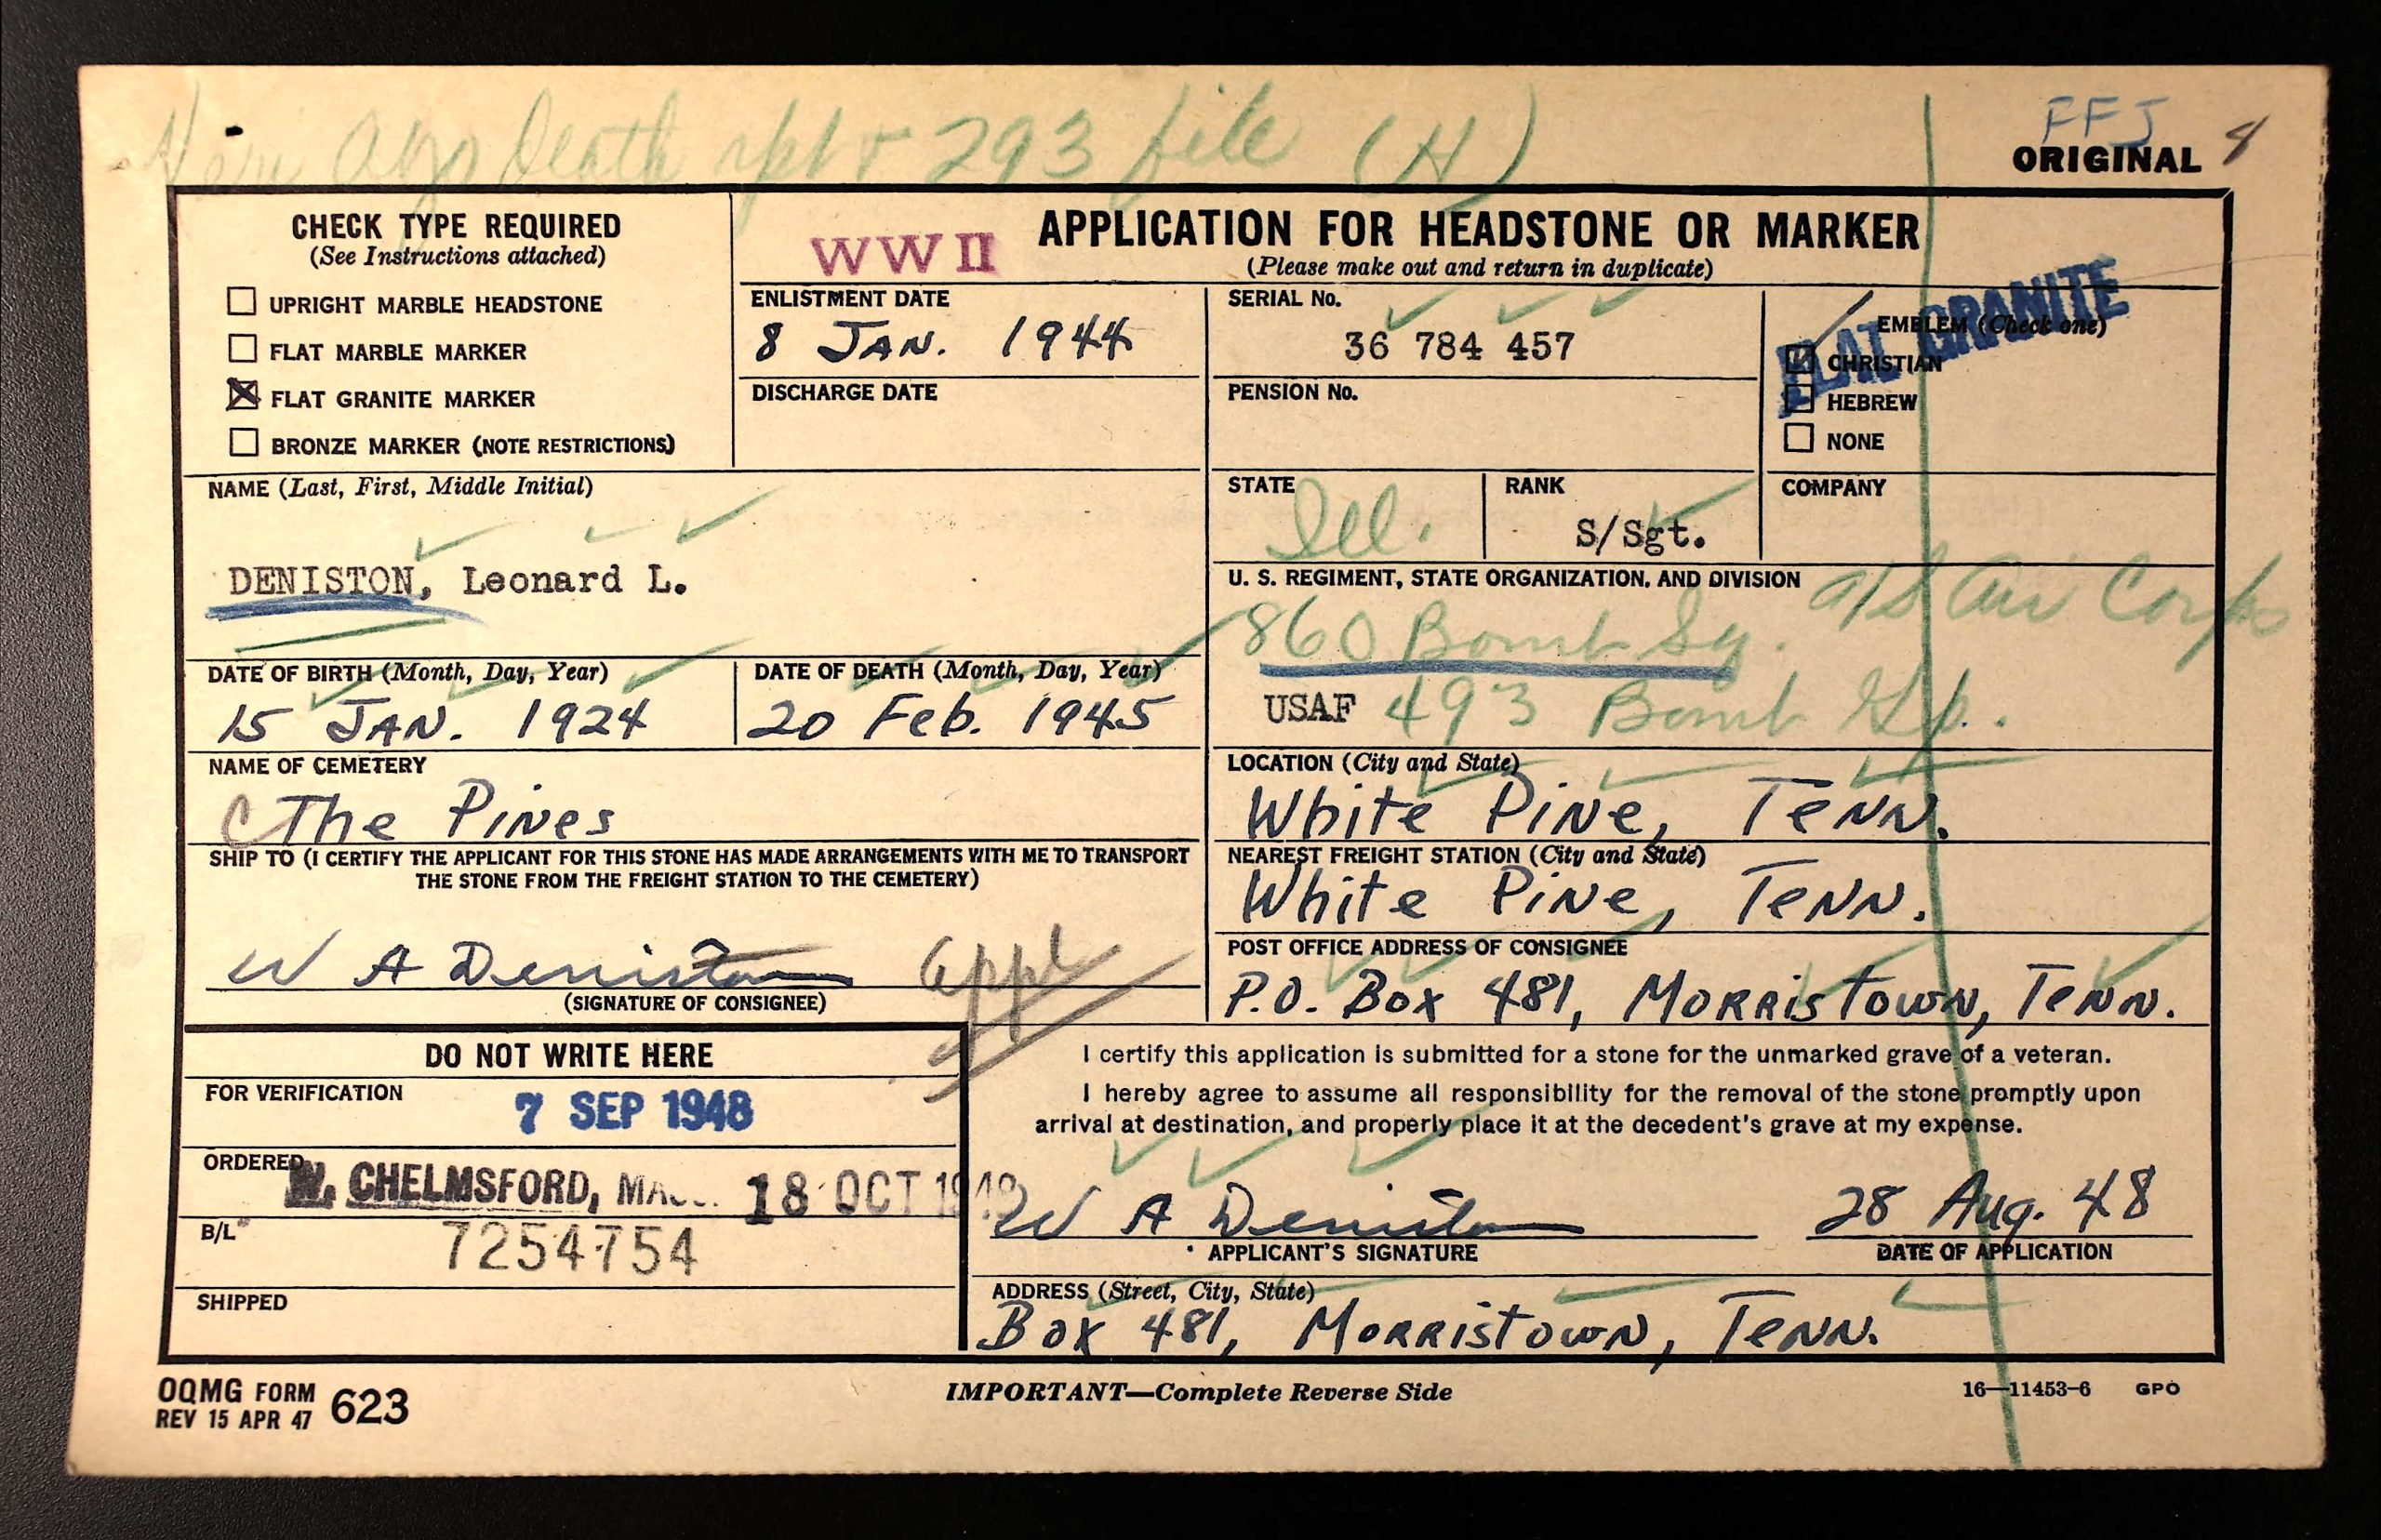 Ago death rpt + 293 file (H)
FFJ
ORIGINAL
CHECK TYPE REQUIRED
(See Instructions attached)
☐ UPRIGHT MARBLE HEADSTONE
☐ FLAT MARBLE MARKER
☒ FLAT GRANITE MARKER
☐ BRONZE MARKER (NOTE RESTRICTIONS)
WW II
APPLICATION FOR HEADSTONE OR MARKER
(Please make out and return in duplicate)
ENLISTMENT DATE
8 JAN. 1944
DISCHARGE DATE
SERIAL No.
36 784 457
PENSION No.
EMBLEM (Check one)
FLAT GRANITE
☑ CHRISTIAN
☐ HEBREW
☐ NONE
NAME (Last, First, Middle Initial)
DENISTON, Leonard L.
STATE
Ill.
RANK
S/Sgt.
COMPANY
U. S. REGIMENT, STATE ORGANIZATION, AND DIVISION
a/s Air Corps
860 Bomb Sq.
USAF 493 Bomb Gp.
DATE OF BIRTH (Month, Day, Year)
15 JAN. 1924
DATE OF DEATH (Month, Day, Year)
20 Feb. 1945
NAME OF CEMETERY
C The Pines
LOCATION (City and State)
White Pine, Tenn.
SHIP TO (I CERTIFY THE APPLICANT FOR THIS STONE HAS MADE ARRANGEMENTS WITH ME TO TRANSPORT
THE STONE FROM THE FREIGHT STATION TO THE CEMETERY)
W A Deniston appl
(SIGNATURE OF CONSIGNEE)
NEAREST FREIGHT STATION (City and State)
White Pine, Tenn.
POST OFFICE ADDRESS OF CONSIGNEE
P.O. Box 481, Morristown, Tenn.
DO NOT WRITE HERE
FOR VERIFICATION
7 SEP 1948
ORDERED
W. CHELMSFORD, MASS. 18 OCT 1948
B/L
7254754
SHIPPED
I certify this application is submitted for a stone for the unmarked grave of a veteran.
I hereby agree to assume all responsibility for the removal of the stone promptly upon
arrival at destination, and properly place it at the decedent's grave at my expense.
W A Deniston
APPLICANT'S SIGNATURE
28 Aug. 48
DATE OF APPLICATION
ADDRESS (Street, City, State)
Box 481, Morristown, Tenn.
OQMG FORM 623
REV 15 APR 47
IMPORTANT—Complete Reverse Side
16—11453-6 GPO